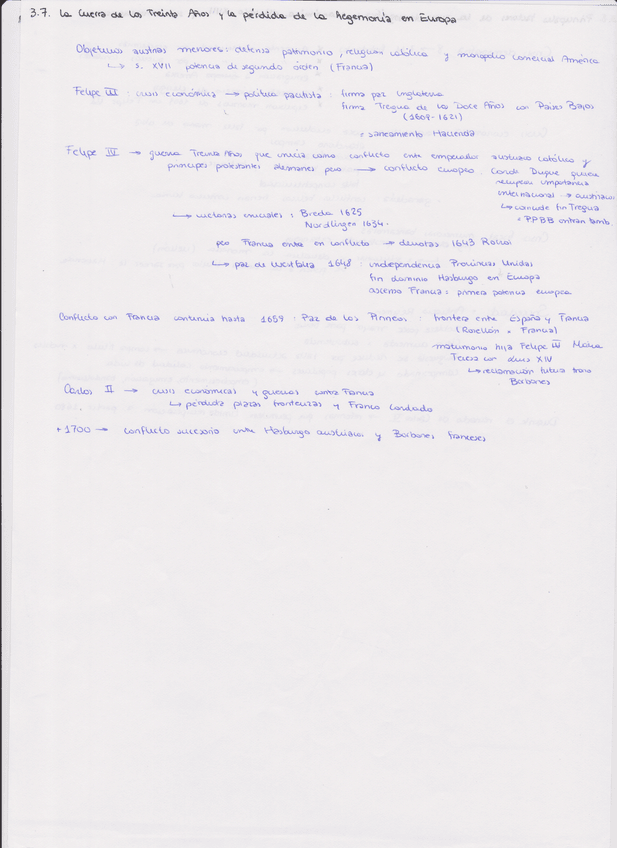 3.7. La Guerra de los Treinta Años y la pérdida de la hegemonía en Europa
Objetivos austrias menores: defensa patrimonio, religión católica y monopolio comercial América
↳ s. XVII potencia de segundo orden (Francia)
Felipe III : crisis económica → política pacifista : firma paz Inglaterra
firma Tregua de los Doce Años con Países Bajos
(1609-1621)
saneamiento Hacienda
Felipe IV → guerra Treinta Años que inicia como conflicto entre emperador austriaco católico y
príncipes protestantes alemanes pero → conflicto europeo. Conde Duque quiere
recuperar importancia
internacional →
↳ coincide fin Tregua
PPBB entran tamb.
↳ victorias iniciales : Breda 1625
Nordlingen 1634.
pero Francia entra en conflicto → derrotas 1643 Rocroi
↳ paz de Westfalia 1648 : independencia Provincias Unidas
fin dominio Hasburgo en Europa
ascenso Francia : primera potencia europea
Conflicto con Francia continua hasta 1659 : Paz de los Pirineos : frontera entre España y Francia
(Rosellón a Francia)
matrimonio hija Felipe IV María
Teresa con Luis XIV
↳ reclamación futura trono
Borbones
Carlos II → crisis económicas y guerras contra Francia
↳ pérdida plazas fronterizas y Franco Condado
+1700 → conflicto sucesorio entre Hasburgo austriacos y Borbones franceses